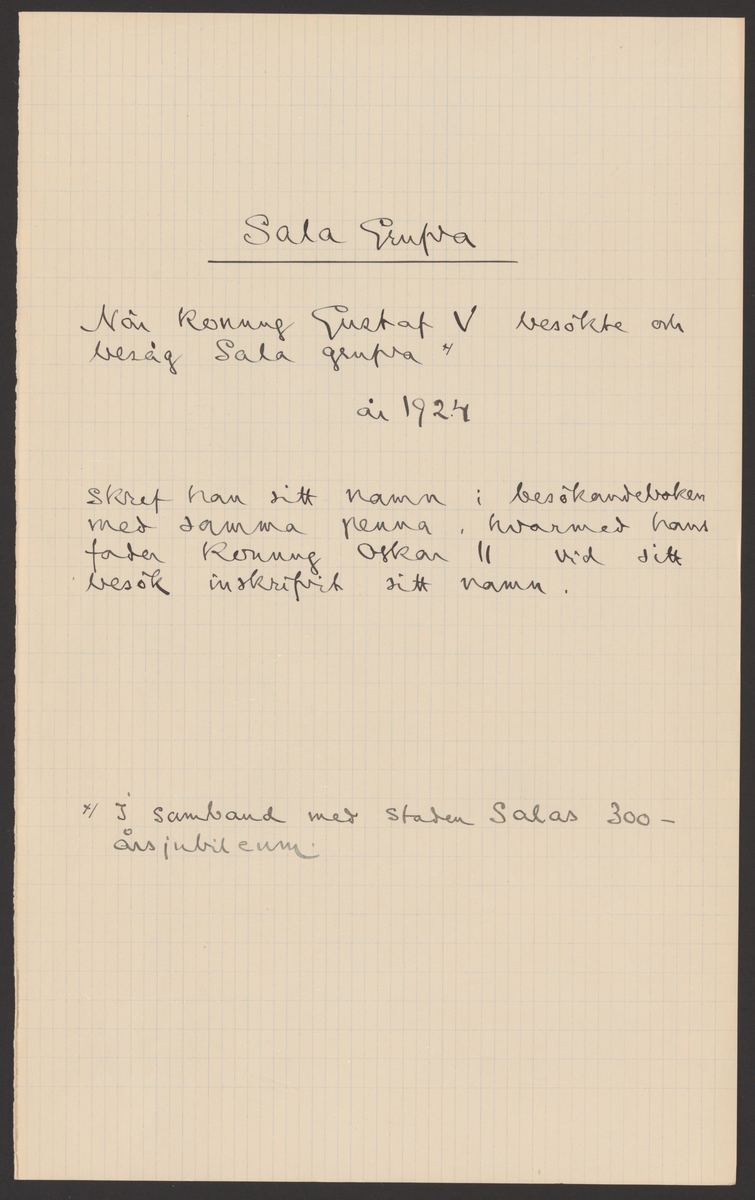 Sala Grufva
När konung Gustaf V besökte och
besåg Sala grufva x/
år 1924
skref han sitt namn i besökandeboken
med samma penna, hvarmed hans
fader konung Oskar II vid sitt
besök inskrifvit sitt namn.
x/ I samband med staden Salas 300-
årsjubileum.